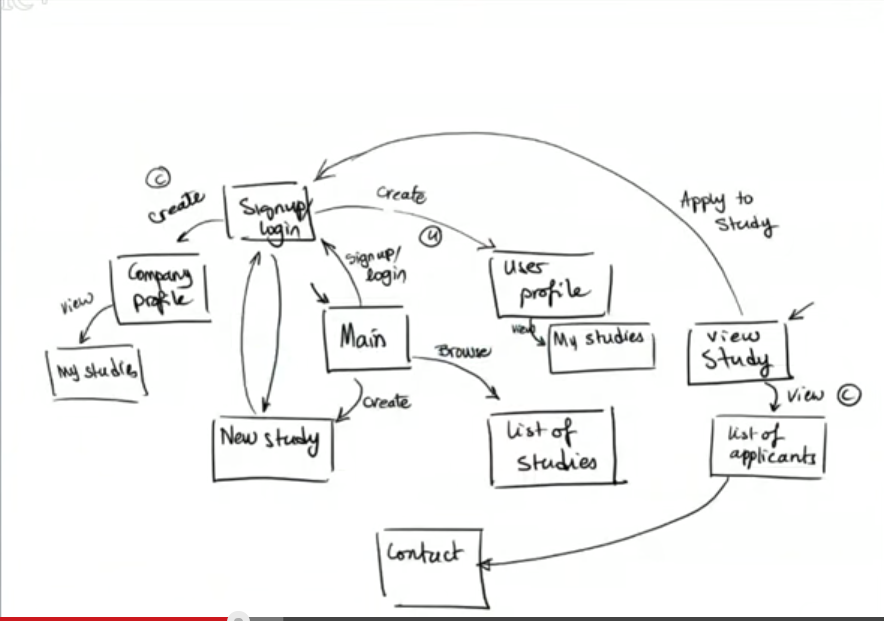 C
create
Signup/
login
create
u
Apply to
Study
Company
profile
view
My studies
Signup/
login
Main
User
profile
view
My studies
view
Study
Browse
create
New study
list of
studies
view C
list of
applicants
Contact